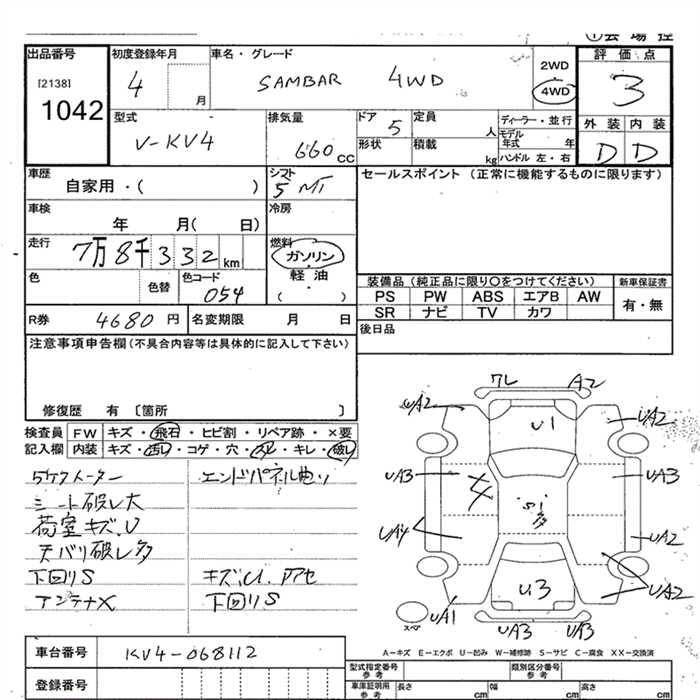 出品番号
[2138]
1042
初度登録年月
4
月
車名・グレード
SAMBAR 4WD
2WD
4WD
評価点
3
型式
V-KV4
排気量
660 CC
ドア
5
形状
定員
人
積載
kg
ディーラー・並行
モデル年式 年
ハンドル 左・右
外装 内装
D D
車歴
自家用・( )
シフト
5 MT
セールスポイント (正常に機能するものに限ります)
車検
年 月( 日)
冷房
走行
7万8千332 km
燃料
ガソリン
軽油
( ・ )
色
色替
色コード
054
装備品 (純正品に限り○をつけてください)
新車保証書
PS PW ABS エアB AW
有・無
SR ナビ TV カワ
R券 4680 円
名変期限 月 日
後日品
注意事項申告欄(不具合内容等は具体的に記入して下さい)
修復歴 有 〔箇所 〕
検査員
記入欄
FW キズ・飛石・ヒビ割・リペア跡・×要
内装 キズ・汚レ・コゲ・穴・スレ・キレ・破レ
5ケタメーター
エンドパネル曲り
シート破レ大
荷室キズ.U
天バリ破レ多
下回りS
キズU.アセ
アンテナX
下回りS
ワレ A2
UA2
U1
UA2
UA3
UA3
UA4
UA2
U3
UA2
スペア
UA1
UA3 UA3
A-キズ E-エクボ U-凹み W-補修跡 S-サビ C-腐食 XX-交換済
車台番号
KV4-068112
登録番号
型式指定番号
参考
類別区分番号
参考
車庫証明用
参考
長さ cm
幅 cm
高さ cm